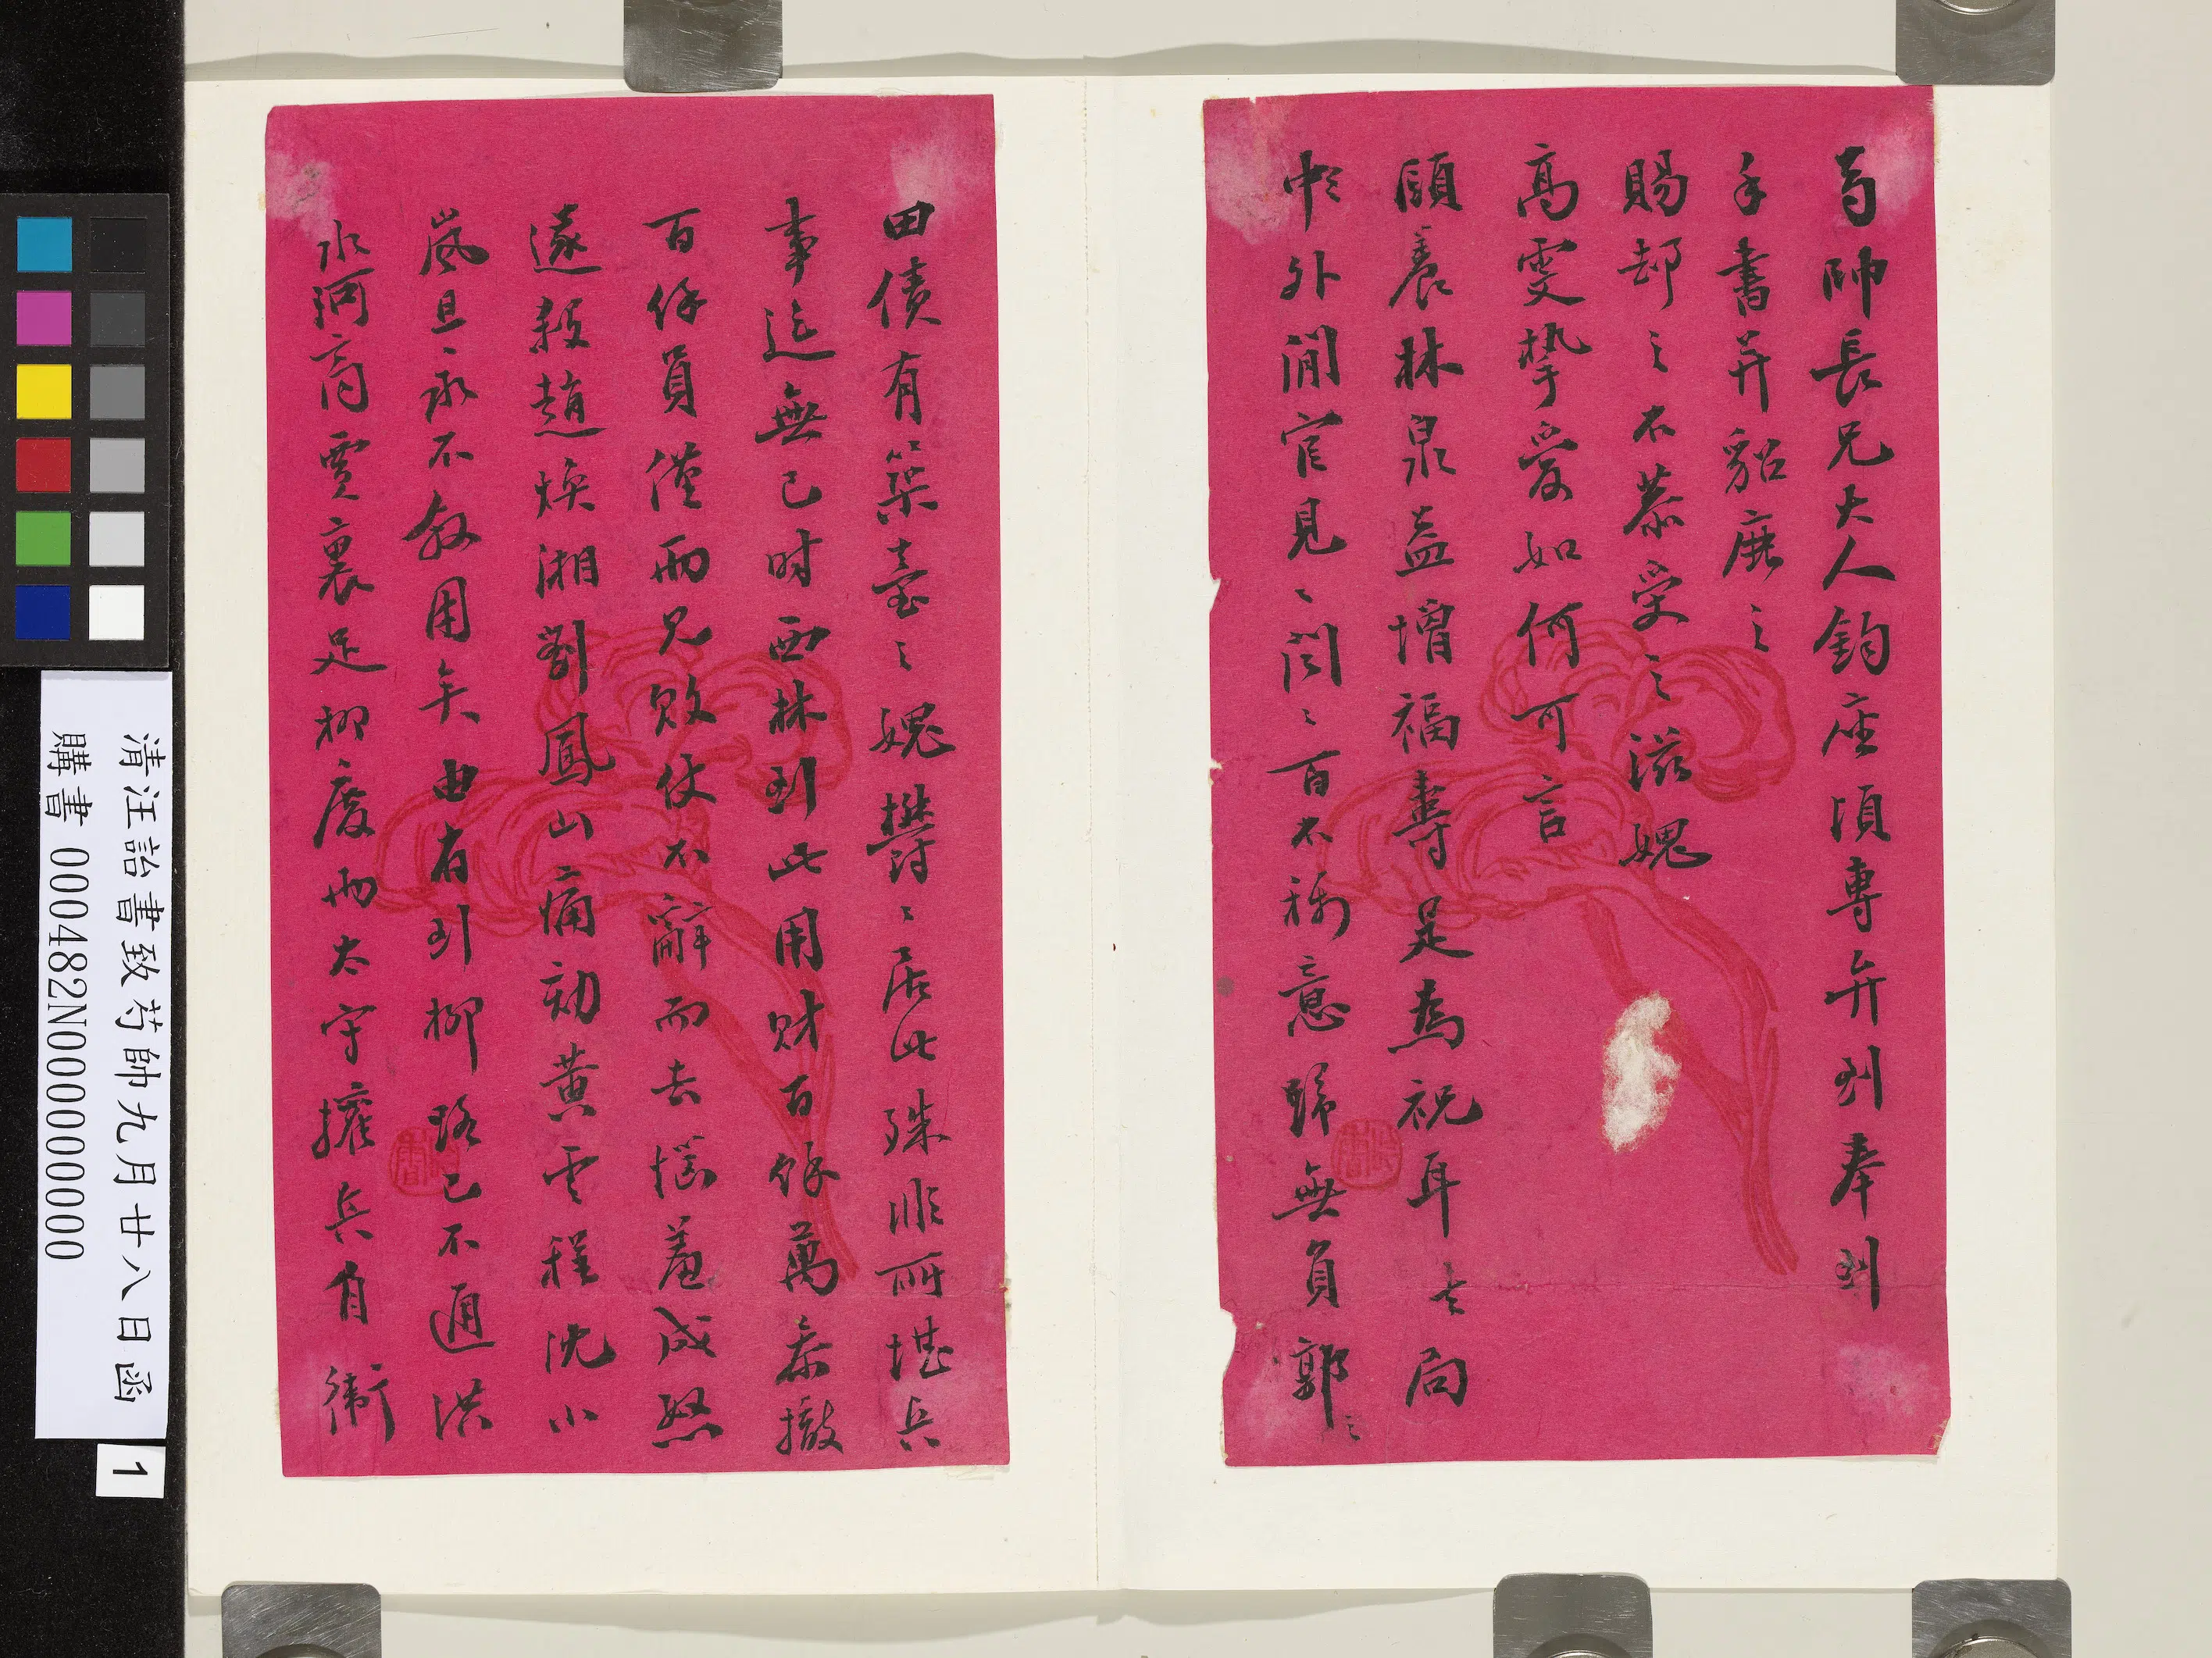 芍帥長兄大人鈞座頃專弁到奉到
手書并貂鹿之
賜却之不恭受之滋愧
高雯摯愛如何可言
頤養林泉益增福壽足為祝耳大局
中外間官見〻聞〻百不稱意歸無負郭之
田債有築臺之媿鬱〻居此殊非所堪兵
事迄無已时西林到此用财百餘萬奏撤
百餘員僅而兄敗仗不辭而去惱羞成怒
遂殺趙煥湘劉鳳山痛劾黄雲程沈小
嵐且永不敘用矣由省到柳路已不通洪
水河商賈裹足柳慶兩太守擁兵自衛
清汪詒書致芍帥九月廿八日函
購書 000482N000000000
1